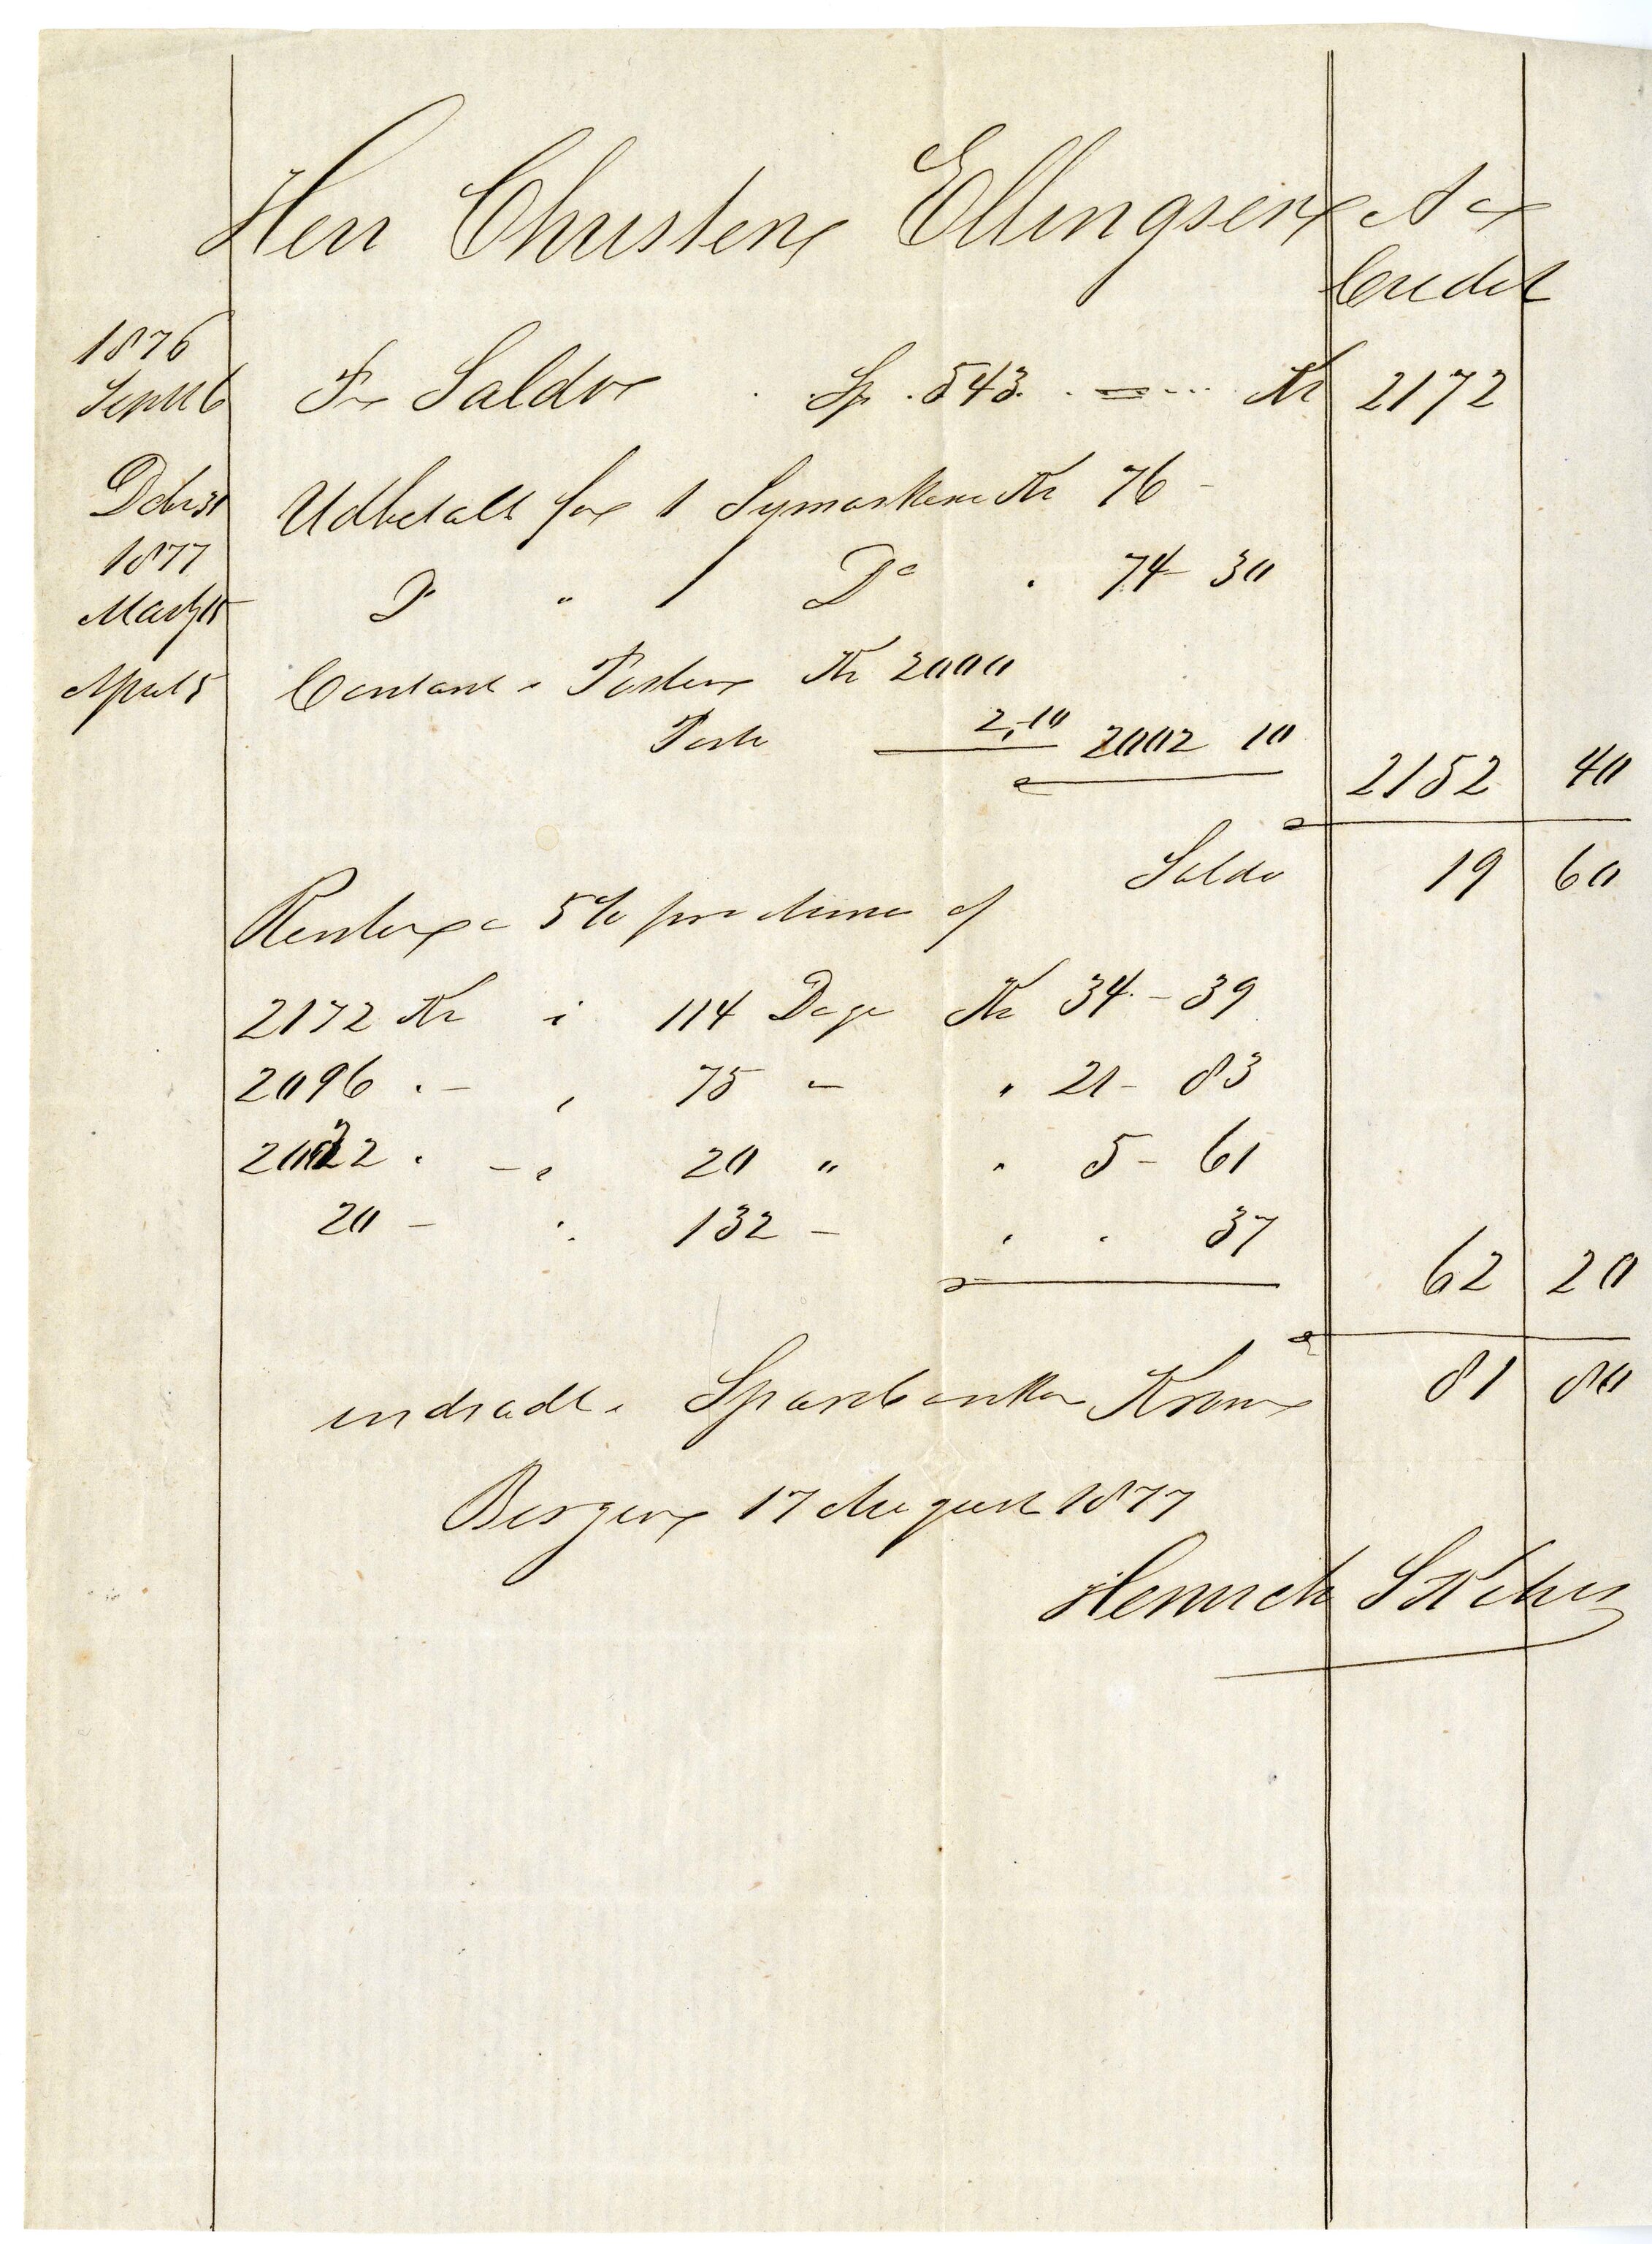 Herr Christen Ellingsen
Credit
1876
Septbr 6 Pr Saldo Sp. 543. = Kr 2172
Dcbr 31 Udbetalt for 1 Symaskine Kr 76 -
1877
Marts 15 Do " 1 Do . 74 30
April 5 Contant i Posten Kr 2000
Porto 2,10 2002 10
2152 40
Saldo 19 60
Renter a 5% pro anno af
2172 Kr i 114 Dage Kr 34 - 39
2096 . - , 75 - " 21 - 83
2022 . - , 20 " " 5 - 61
20 - 132 - " . 37
62 20
81 80
indsadt i Sparebanken Kroner
Bergen 17 August 1877
Henrich